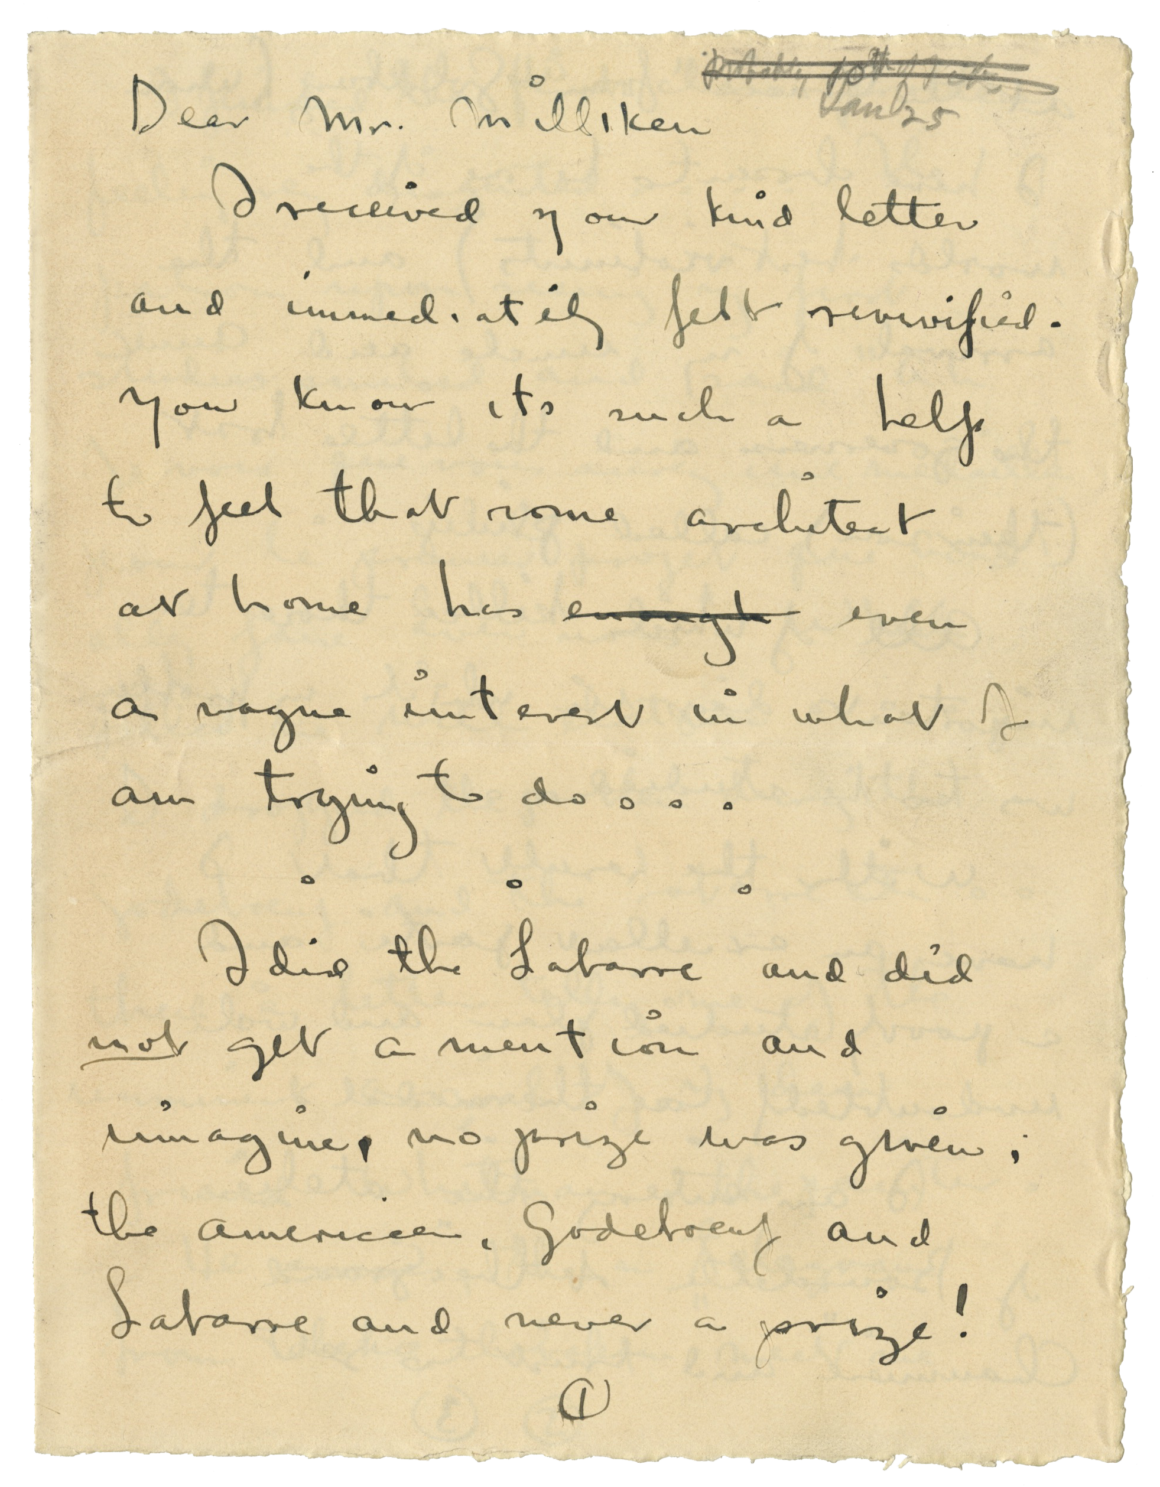 Probably 10th of
Jan 25
Dear Mr. Milliken
I received your kind letter
and immediately felt revivified.
you know its such a help
to feel that some architect
at home has enough even
a vague interest in what I
am trying to do....
I did the Labarre and did
not get a mention and
imagine, no prize was given;
the american, Godeboeuf and
Labarre and never a prize!
1